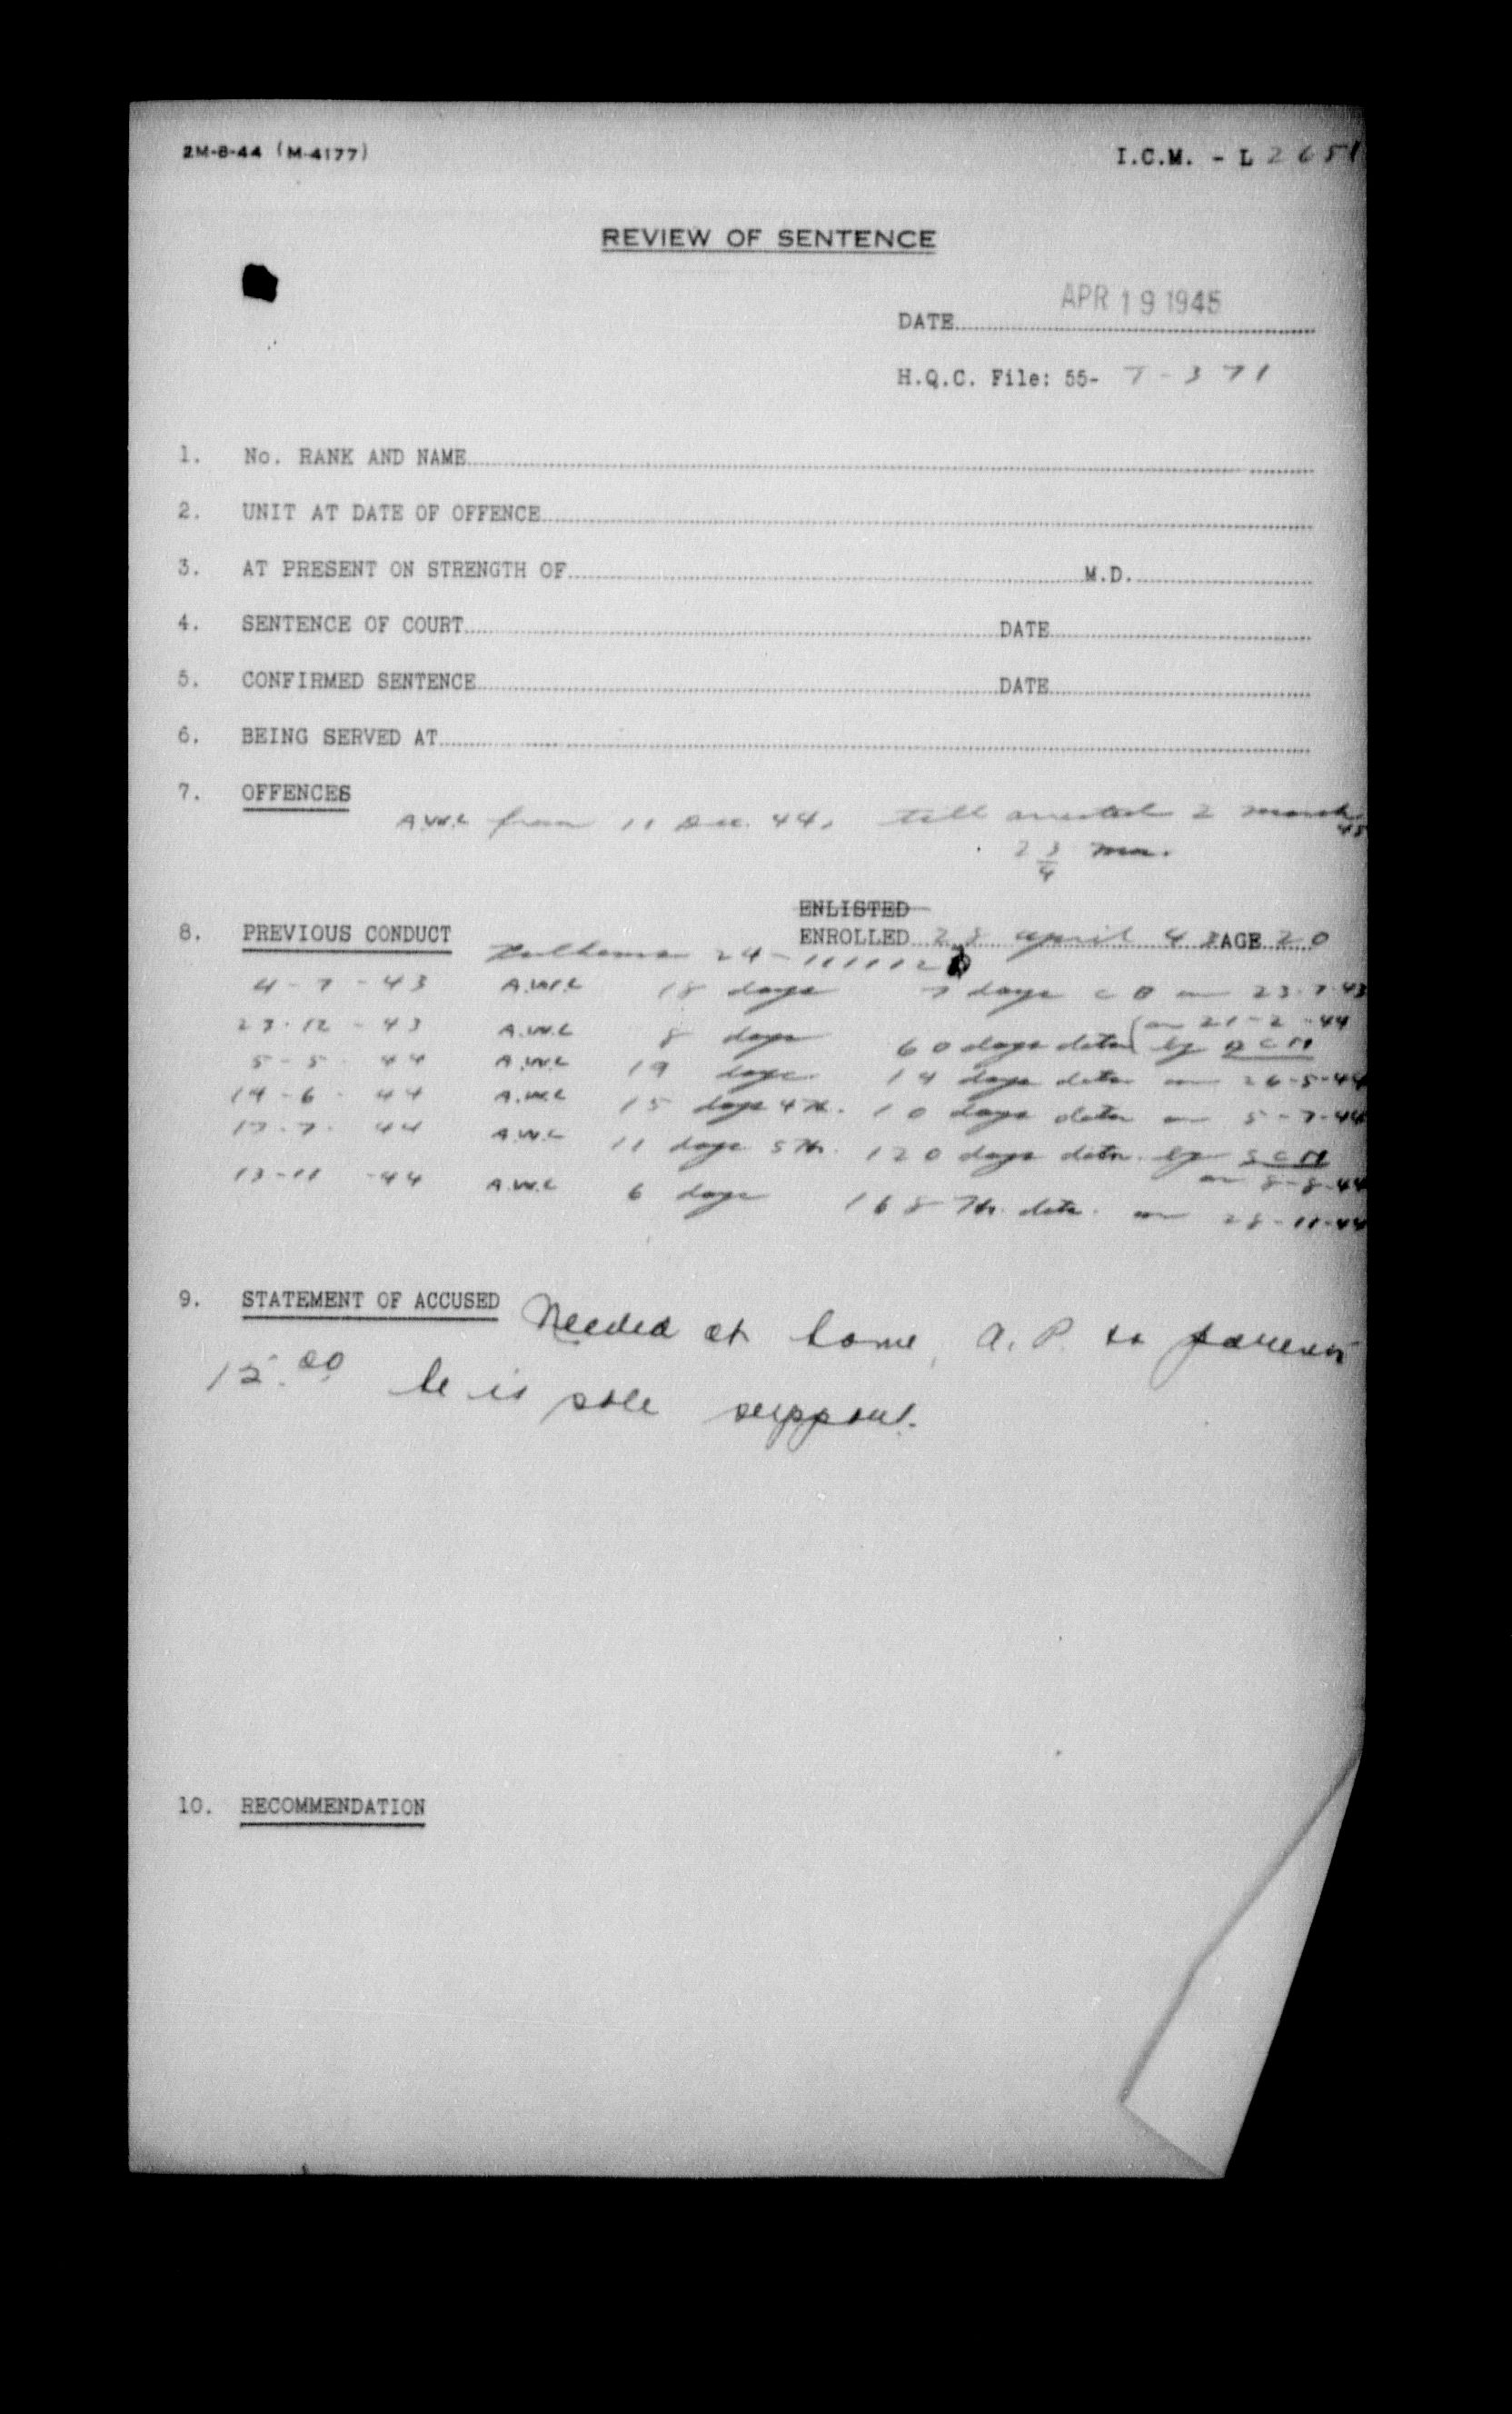 2M-8-44 (M-4177)
I.C.M. - L 2651
REVIEW OF SENTENCE
DATE APR 19 1945
H.Q.C. File: 55- 7-371
1. No. RANK AND NAME
2. UNIT AT DATE OF OFFENCE
3. AT PRESENT ON STRENGTH OF M.D.
4. SENTENCE OF COURT DATE
5. CONFIRMED SENTENCE DATE
6. BEING SERVED AT
7. OFFENCES
A.W.L from 11 Dec. 44, till arrested 2 March 45
2 3/4 mos.
ENLISTED
8. PREVIOUS CONDUCT ENROLLED 28 April 43 AGE 20
24-1111121
4-7-43 A.W.L 18 days 7 days C B on 23-7-43
27-12-43 A.W.L 8 days 60 days detn (on 21-2-44 by D C M
5-5-44 A.W.L 19 days 14 days detn on 26-5-44
19-6-44 A.W.L 15 days 4 hr. 10 days detn on 5-7-44
17-7-44 A.W.L 11 days 5 hr. 120 days detn. by S C M
on 8-8-44
13-11-44 A.W.L 6 days 168 hr. detn. on 28-11-44
9. STATEMENT OF ACCUSED Needed at home, A.P. to parents
15.00 he is sole support.
10. RECOMMENDATION